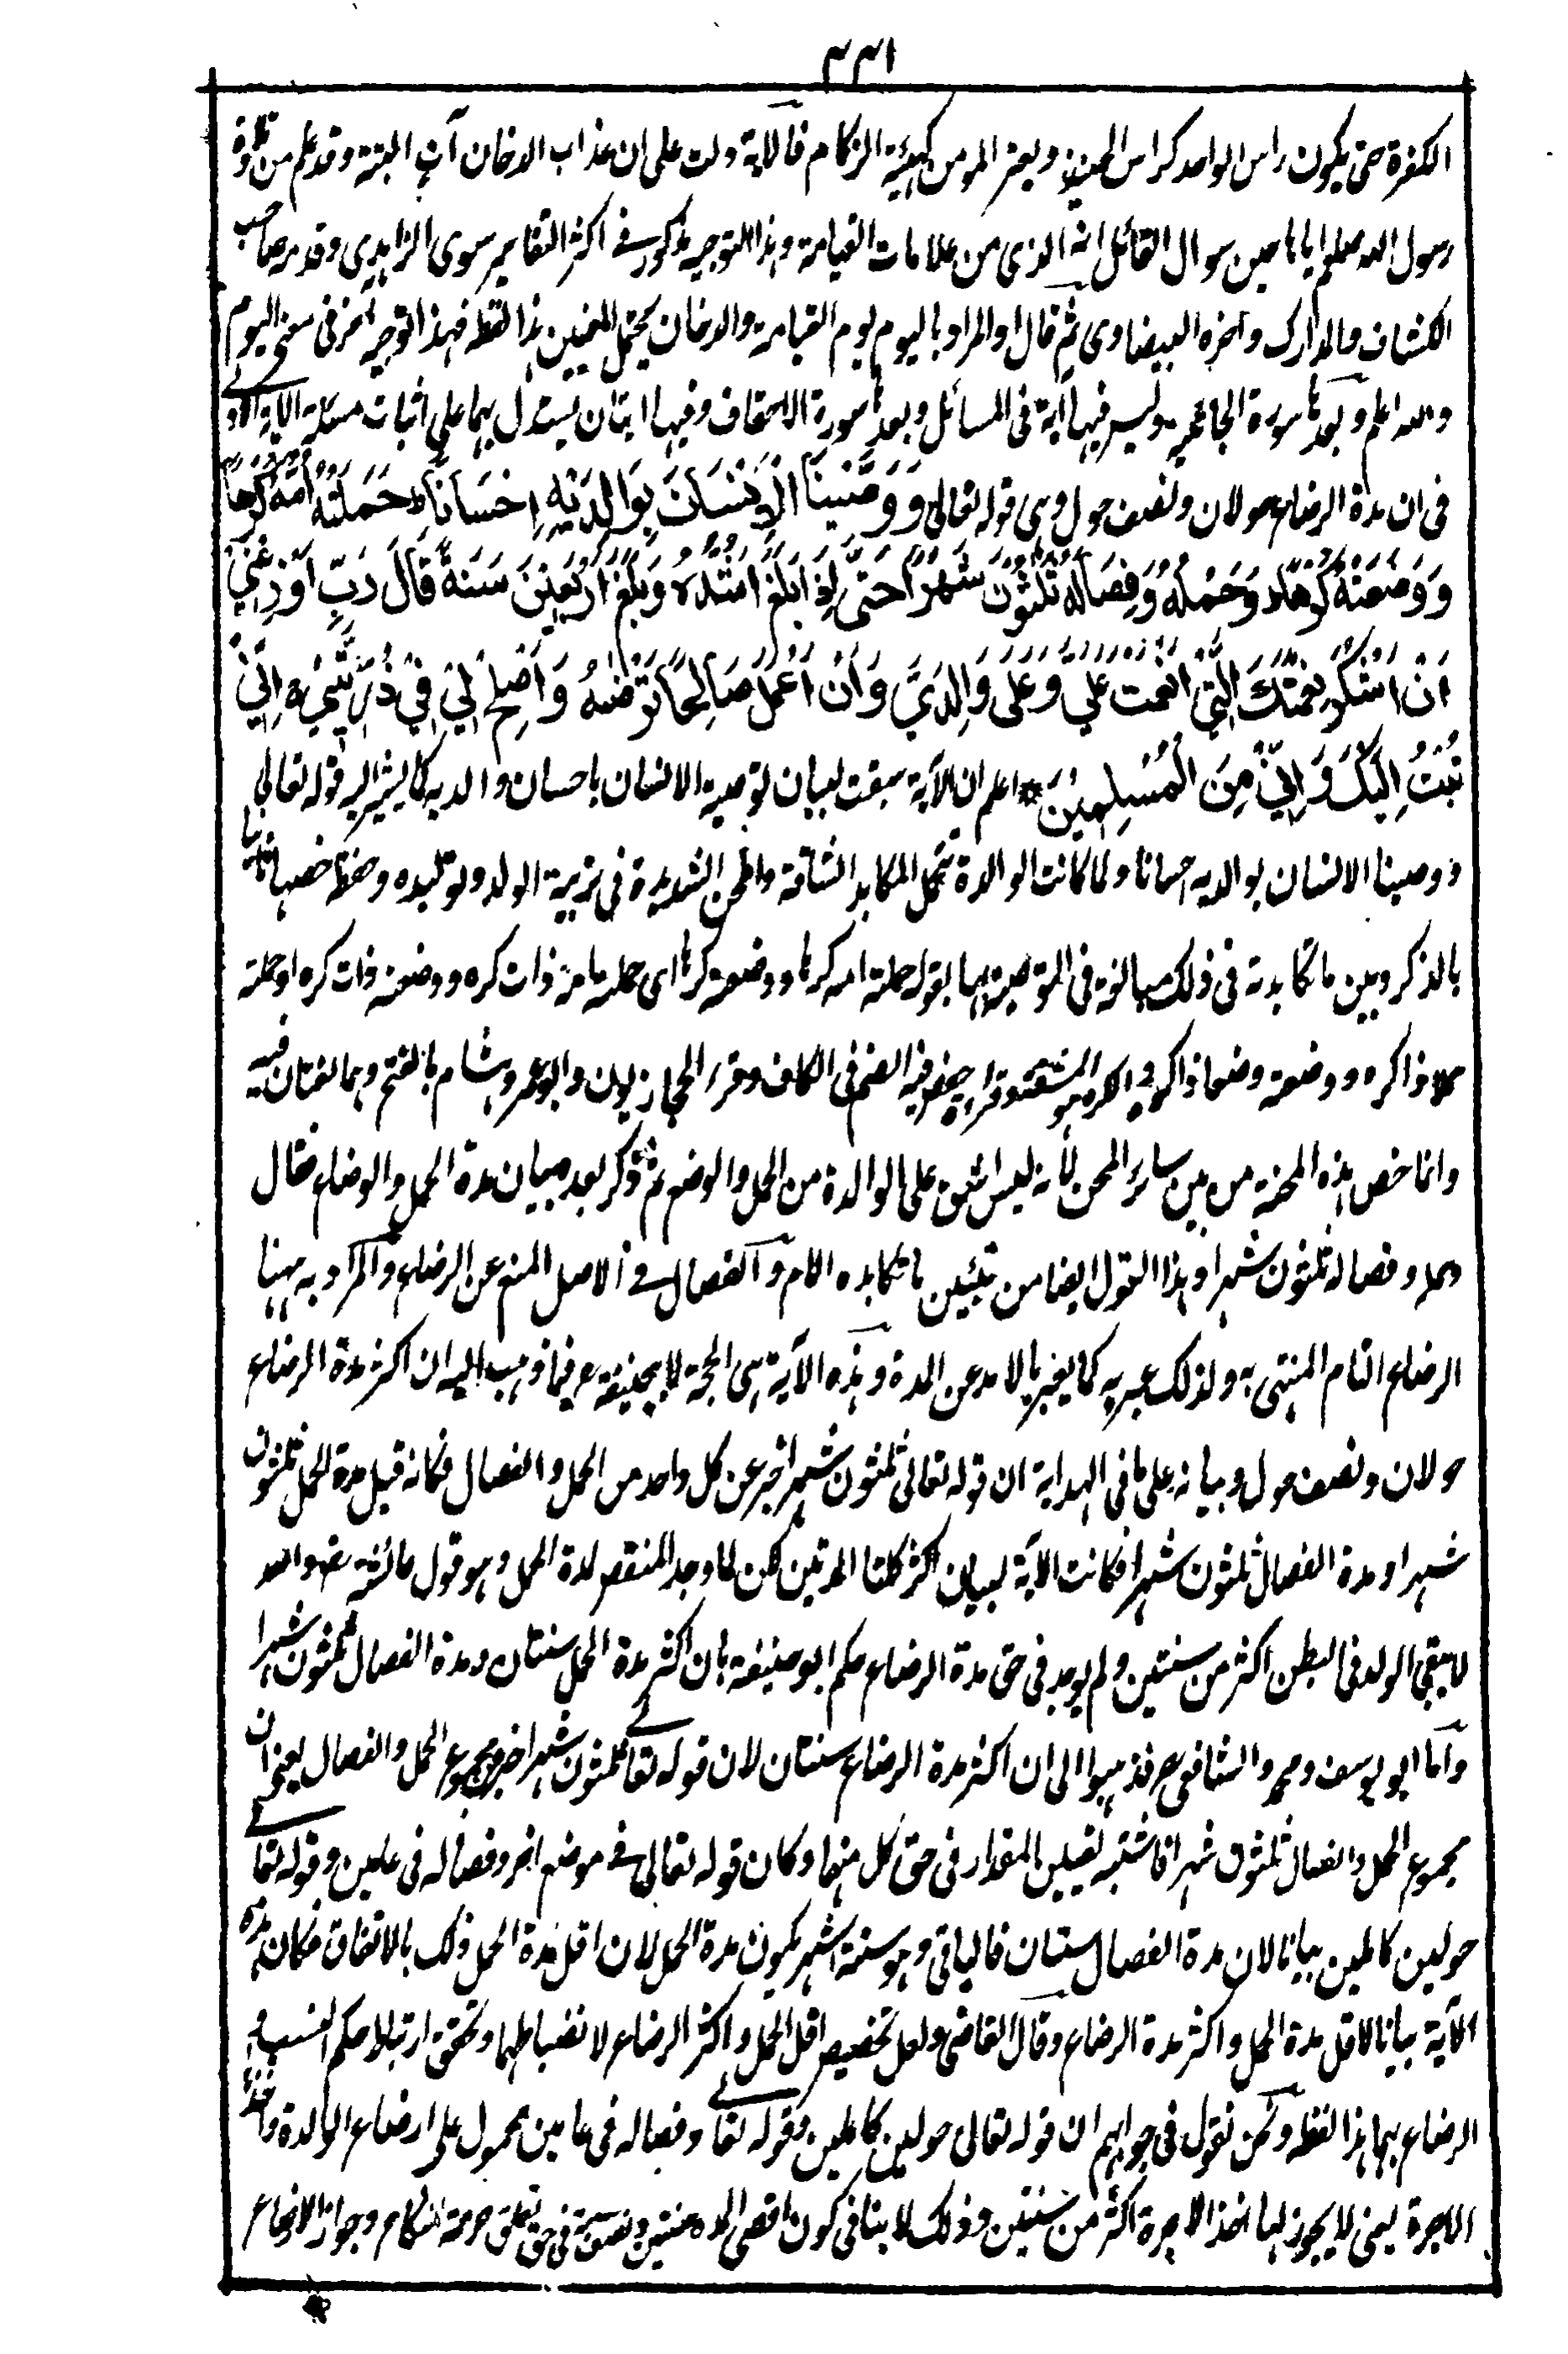 ٣٣١
الكفرة حتى يكون راس الواحد كراس الحنيذ ويعتر المومن كهيئة الزكام فالآية دلت على ان عذاب الدخان آت البتة وقد علم من تلاوة
رسول الله صلعم اياها حين سوال القائل انه الذى من علامات القيامة وهذا التوجيه مذكور فے اكثر التفاسير سوى الزاهدى وقدمه صاحب
الكشاف والمدارك وآخره البيضاوى ثم قال او المراد باليوم يوم القيامة والدخان يحتمل المعنيين هذا لفظه فهذا توجيه آخر فى معنى اليوم
والله اعلم وبعدها سورة الجاثية وليس فيها آية فى المسائل وبعدها سورة الاحقاف وفيها ايتان يستدل بهما على اثبات مسئلة الآية الاولے
فى ان مدة الرضاع حولان ونصف حول وهى قوله تعالى وَوَصَّيْنَا الْاِنْسَانَ بِوَالِدَيْهِ اِحْسَانًا حَمَلَتْهُ اُمُّهٗ كُرْهًا
وَّوَضَعَتْهُ كُرْهًا وَحَمْلُهٗ وَفِصَالُهٗ ثَلٰثُوْنَ شَهْرًا حَتّٰى اِذَا بَلَغَ اَشُدَّهٗ وَبَلَغَ اَرْبَعِيْنَ سَنَةً قَالَ رَبِّ اَوْزِعْنِيْ
اَنْ اَشْكُرَ نِعْمَتَكَ الَّتِيْ اَنْعَمْتَ عَلَيَّ وَعَلٰى وَالِدَيَّ وَاَنْ اَعْمَلَ صَالِحًا تَرْضٰهُ وَاَصْلِحْ لِيْ فِيْ ذُرِّيَّتِيْ اِنِّيْ
تُبْتُ اِلَيْكَ وَاِنِّيْ مِنَ الْمُسْلِمِيْنَ * اعلم ان الآية سيقت لبيان توصية الانسان باحسان والديه كما يشير اليه قوله تعالى
ووصينا الانسان بوالديه احسانا ولما كانت الوالدة تتحمل المكابد الشاقة والمحن الشديدة فى تربية الولد وتوليده وحفظه خصها ثانيا
بالذكر وبين ما تكابدته فى ذلك مبالغة فى التوصية بها بقوله حملته امه كرها ووضعته كرها اى حملته امه ذات كره ووضعته ذات كره او حملته
حملا ذا كره ووضعته وضعا ذا كره والكره هو المشقة وقراءة حفص فيه الضم فى الكاف وقرء الحجازيون وابو عمرو وهشام بالفتح وهما لغتان فيه
وانما خص هذه المحنة من بين سائر المحن لأنه ليس اشق على الوالدة من الحمل والوضع ثم ذكر بعده بيان مدة الحمل والوضاع فقال
وحمله وفصاله ثلثون شهرا وهذا القول ايضا من تبيين ما تكابده الام والفصال فے الاصل المنع عن الرضاع والمراد به ههنا
الرضاع التام المنتهى به ولذلك عبر به كما يعبر بالامد عن المدة وهذه الآية هى الحجة لابيحنيفة رح فيما ذهب اليه ان اكثر مدة الرضاع
حولان ونصف حول وبيانه على ما فى الهداية ان قوله تعالى ثلثون شهرا خبر عن كل واحد من الحمل والفصال فكانه قيل مدة الحمل ثلثون
شهرا ومدة الفصال ثلثون شهرا فكانت الآية لبيان اكثر كلتا المدتين لكن لما وجد المنقص لمدة الحمل وهو قول عائشة رض والله
لا يبقى الولد فى البطن اكثر من سنتين ولم يوجد فى حق مدة الرضاع حكم ابو حنيفة بان اكثر مدة الحمل سنتان ومدة الفصال ثلثون شهرا
واما ابو يوسف ومحمد والشافعى رح فذهبوا الى ان اكثر مدة الرضاع سنتان لان قوله تعالے ثلثون شهرا خبر مجموع الحمل والفصال يعنى ان
مجموع الحمل والفصال ثلثون شهرا فاشتبه تعيين المقدار فى حق كل منهما وكان قوله تعالى فے موضع اخر وفصاله فى عامين وقوله تعالے
حولين كاملين بيانا لان مدة الفصال سنتان فالباقى وهو ستة اشهر يكون مدة الحمل لان اقل مدة الحمل ذلك بالاتفاق فكان هذه
الآية بيانا لاقل مدة الحمل واكثر مدة الرضاع وقال القاضى ولعل تخصيص اقل الحمل واكثر الرضاع لانضباطهما وتحقق ارتباط حكم النسب و
الرضاع بهما هذا لفظه ونحن نقول فى جوابهم ان قوله تعالى حولين كاملين وقوله تعالے وفصاله فى عامين محمول على ارضاع الوالدة واخذ
الاجرة يعنى لا يجوز لها اخذ الاجرة اكثر من سنتين وذلك لا ينافى كون اقصى المدة سنتين ونصف سنة فى حق تعلق حرمة النكاح وجواز الارضاع